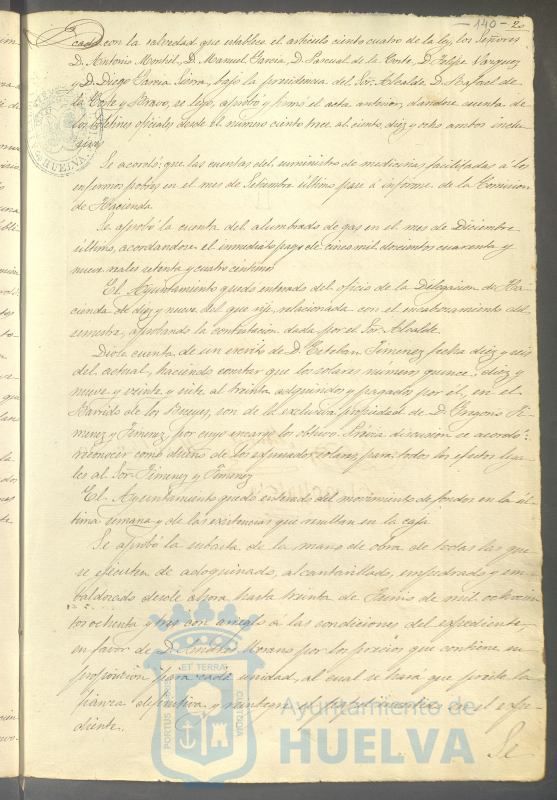 140-2
cada con la salvedad que establece el artículo ciento cuatro de la ley, los Señores
D. Antonio Montiel, D. Manuel Garcia, D. Pascual de la Corte, D. Felipe Vazquez
y D. Diego Garcia Sierra, bajo la presidencia del Sor. Alcalde, D. Rafael de
la Corte y Bravo, se leyó, aprobó y firmó el acta anterior, dandose cuenta de
los Boletines oficiales desde el número ciento trece al ciento diez y ocho ambos inclu-
sives.
Se acordó; que las cuentas del suministro de medicinas facilitadas á los
enfermos pobres en el mes de Setiembre último pase á informe de la Comision
de Hacienda.
Se aprobó la cuenta del alumbrado de gas en el mes de Diciembre
último, acordandose el inmediato pago de cinco mil doscientos cuarenta y
nueve reales setenta y cuatro centimos.
El Ayuntamiento quedó enterado del oficio de la Delegacion de Ha-
cienda de diez y nueve del que rije, relacionada con el encabezamiento del
semestre, aprobando la contestacion dada por el Sor. Alcalde.
Diose cuenta de un escrito de D. Esteban Jimenez fecha diez y seis
del actual, haciendo constar que los solares números quince, diez y
nueve y veinte y siete al treinta adquiridos y pagados por él, en el
Barrido de los Bueyes, son de la exclusiva propiedad de D. Gregorio Ji-
menez y Jimenez por cuyo encargo los obtuvo. Previa discusion se acordó:
reconocer como dueño de los espresados solares para todos los efectos lega-
les al Sor. Jimenez y Jimenez.
El Ayuntamiento quedó enterado del movimiento de fondos en la úl-
tima semana y de las existencias que resultan en la caja.
Se aprobó la subasta de la mano de obra de todas las que
se ejecuten de adoquinado, alcantarillado, empedrado y em-
baldosado desde ahora hasta treinta de Junio de mil ochocien-
tos ochenta y tres con arreglo á las condiciones del expediente,
en favor de D. Andres Moreno por los precios que contiene su
proposicion para cada unidad, al cual se hará que preste la
fianza definitiva y en el expe-
diente.
Se
HUELVA
PORTUS
ET TERRAE
CUSTODIA
Ayuntamiento de
HUELVA